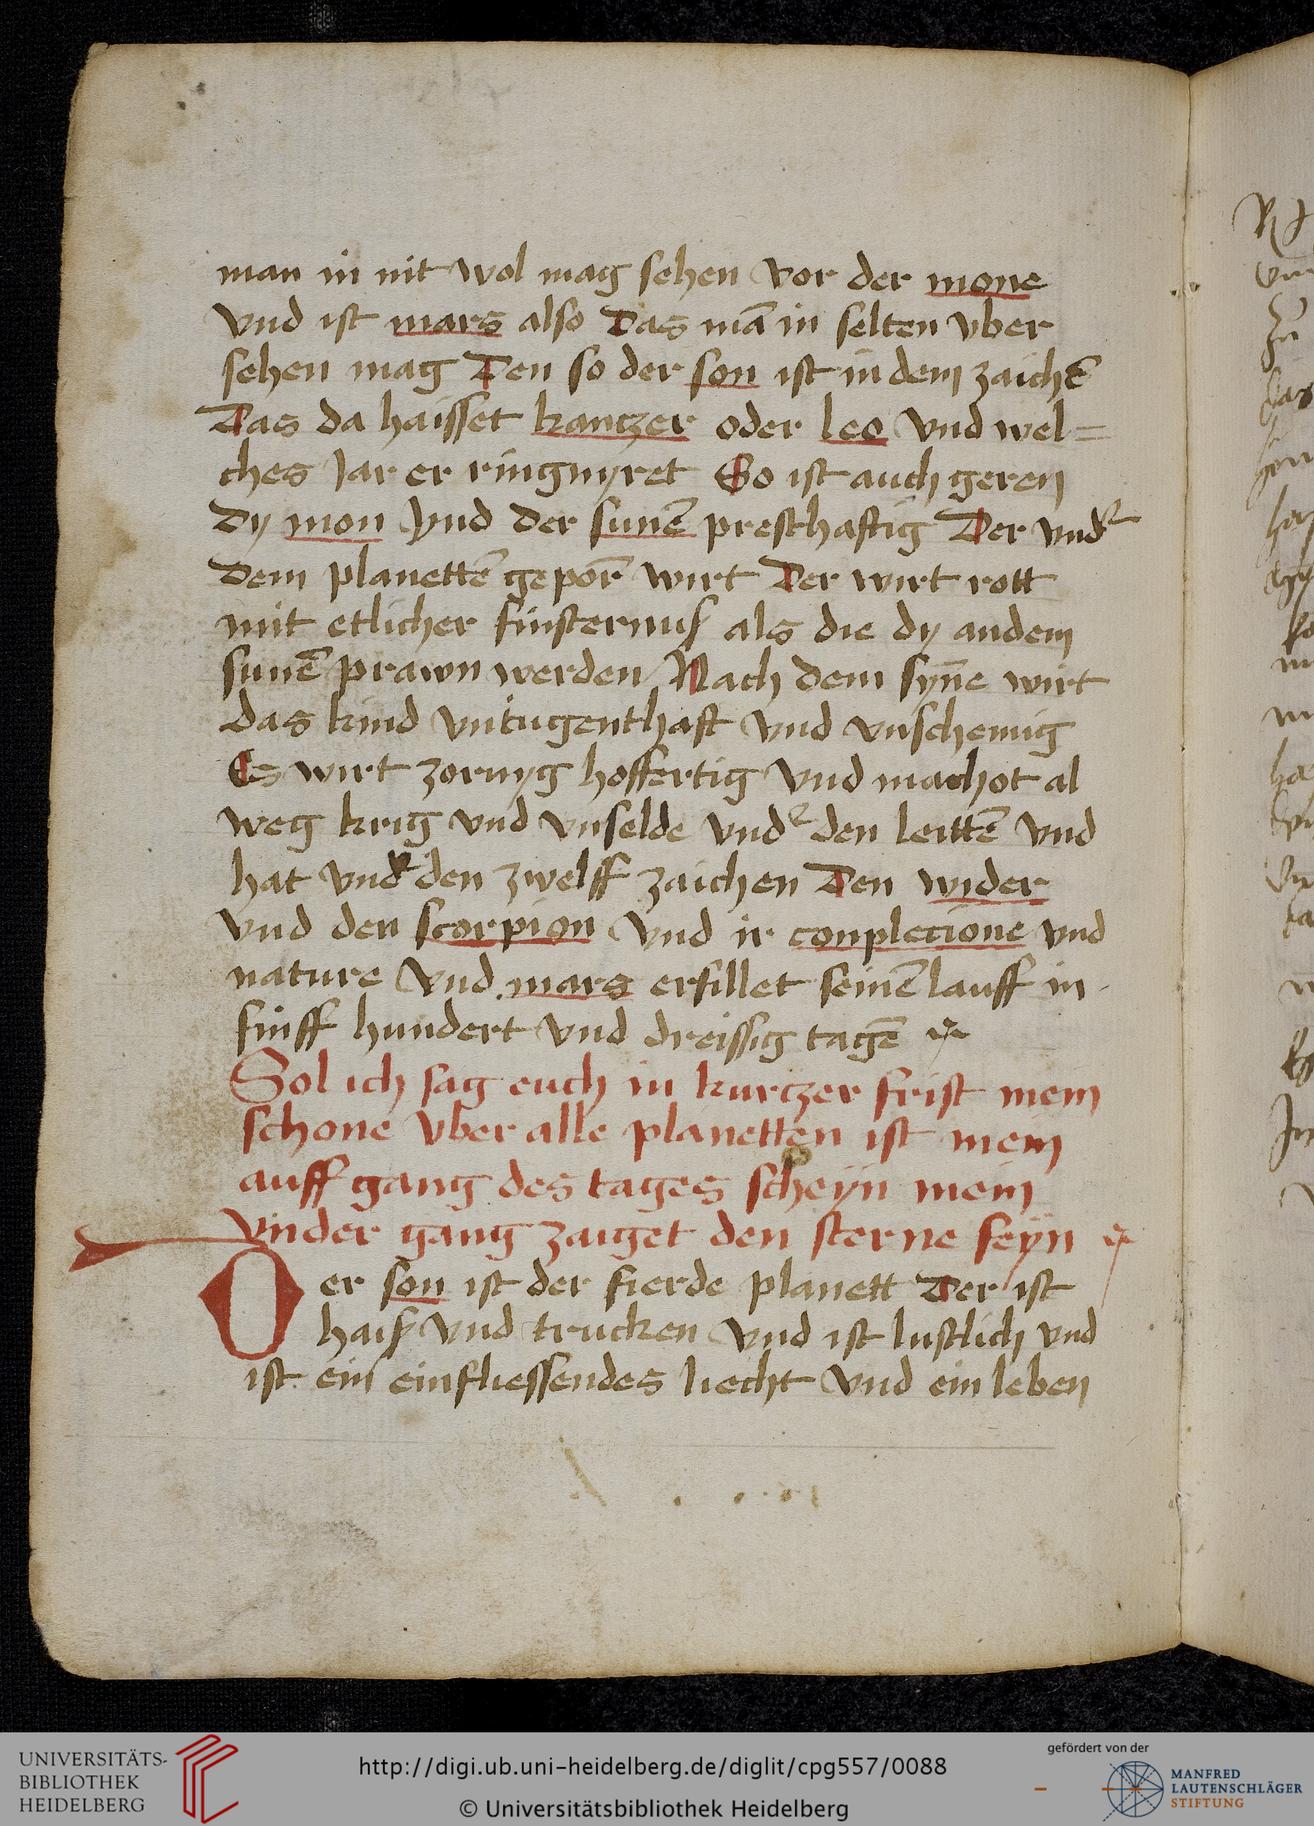 man in nit wol mag sehen vor der mone
vnd ist mars also Das mā in selten vber
sehen mag Den so der son ist in dem zaichē
Das da haisset kantzer oder leo vnd wel=
ches Jar er ringnyret So ist auch geren
Dy mon vnd der sunē presthafftig Der vnd'
Dem planettē gepor̄ wirt Der wirt rott
mit etlicher finsternuß als die dy andem
sunē prawn werden Nach dem syn̄e wirt
das kind vntugenthaft vnd vnschemig
Es wirt zornyg hoffertig vnd machot al
weg krig vnd vnselde vnd' den leittē vnd
hat vnd' den zwelff zaichen Den wider
vnd den scorpion vnd ir conplecione vnd
nature vnd mars erfillet seinē lauff in
finff hundert vnd dreissig tagē
Sol ich sag euch in kurczer frist mein
schone vber alle planetten ist mein
auff gang des tages scheyn mein
vnder gang zaiget den sterne seyn
Der son ist der fierde planett Der ist
haiß vnd trucken vnd ist lustlich vnd
ist ein einfliessendes liecht vnd ein leben
UNIVERSITÄTS-
BIBLIOTHEK
HEIDELBERG
http://digi.ub.uni-heidelberg.de/diglit/cpg557/0088
© Universitätsbibliothek Heidelberg
gefördert von der
MANFRED
LAUTENSCHLÄGER
STIFTUNG